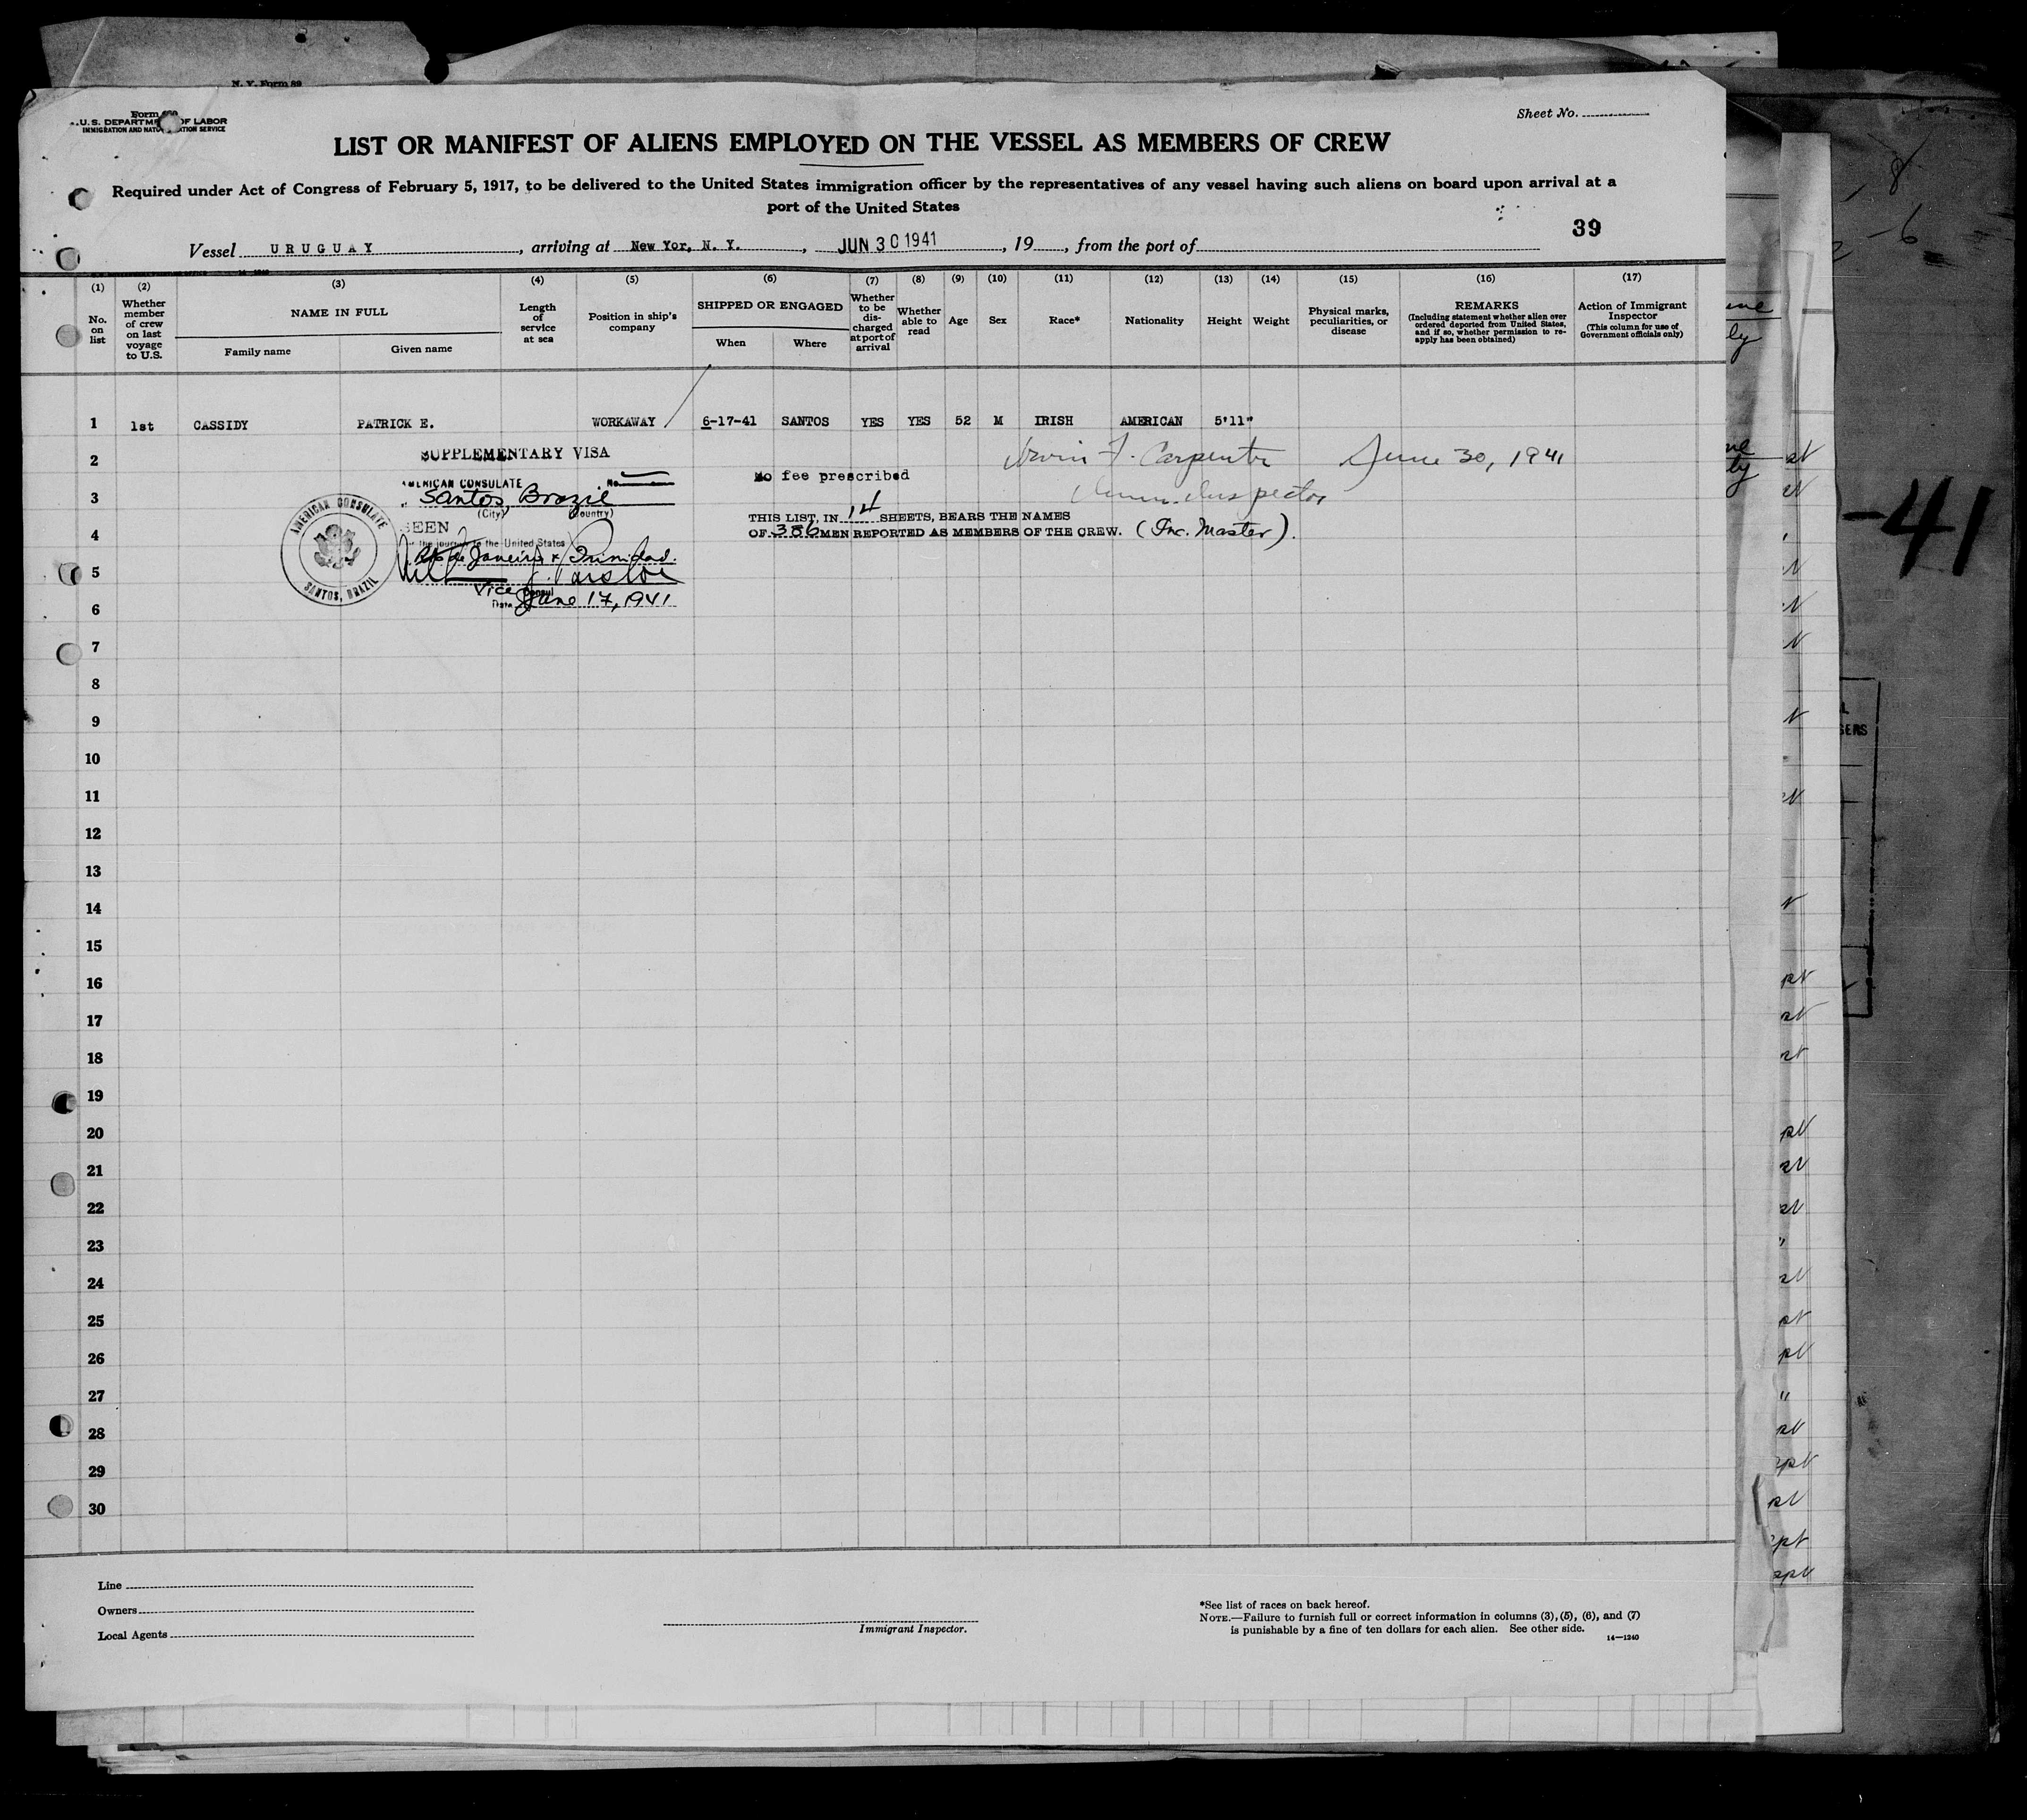 N. Y. Form 89
Form
U.S. DEPARTMENT OF LABOR
IMMIGRATION AND NATURALIZATION SERVICE
Sheet No.
LIST OR MANIFEST OF ALIENS EMPLOYED ON THE VESSEL AS MEMBERS OF CREW
Required under Act of Congress of February 5, 1917, to be delivered to the United States immigration officer by the representatives of any vessel having such aliens on board upon arrival at a
port of the United States
39
Vessel URUGUAY, arriving at New Yor, N. Y., JUN 30 1941, 19, from the port of
(1) (2) (3) (4) (5) (6) (7) (8) (9) (10) (11) (12) (13) (14) (15) (16) (17)
No. on list
Whether member of crew on last voyage to U.S.
NAME IN FULL
Family name
Given name
Length of service at sea
Position in ship's company
SHIPPED OR ENGAGED
When
Where
Whether to be discharged at port of arrival
Whether able to read
Age
Sex
Race*
Nationality
Height
Weight
Physical marks, peculiarities, or disease
REMARKS
(Including statement whether alien ever ordered deported from United States, and if so, whether permission to reapply has been obtained)
Action of Immigrant Inspector
(This column for use of Government officials only)
1 1st CASSIDY PATRICK E. WORKAWAY 6-17-41 SANTOS YES YES 52 M IRISH AMERICAN 5'11"
SUPPLEMENTARY VISA
2
Irvin F. Carpenter June 30, 1941
No fee prescribed
AMERICAN CONSULATE No.
3
Santos, Brazil
Immn. Inspector
(City) (Country)
THIS LIST, IN 14 SHEETS, BEARS THE NAMES
OF 386 MEN REPORTED AS MEMBERS OF THE CREW. (Inc. Master).
AMERICAN CONSULATE
SANTOS, BRAZIL
SEEN
4
the journey to the United States
Rio de Janeiro & Trinidad.
5
Vice Consul
Date June 17, 1941
6
7
8
9
10
11
12
13
14
15
16
17
18
19
20
21
22
23
24
25
26
27
28
29
30
Line
Owners
Local Agents
Immigrant Inspector.
*See list of races on back hereof.
NOTE.—Failure to furnish full or correct information in columns (3), (5), (6), and (7)
is punishable by a fine of ten dollars for each alien. See other side.
14—1240
-41